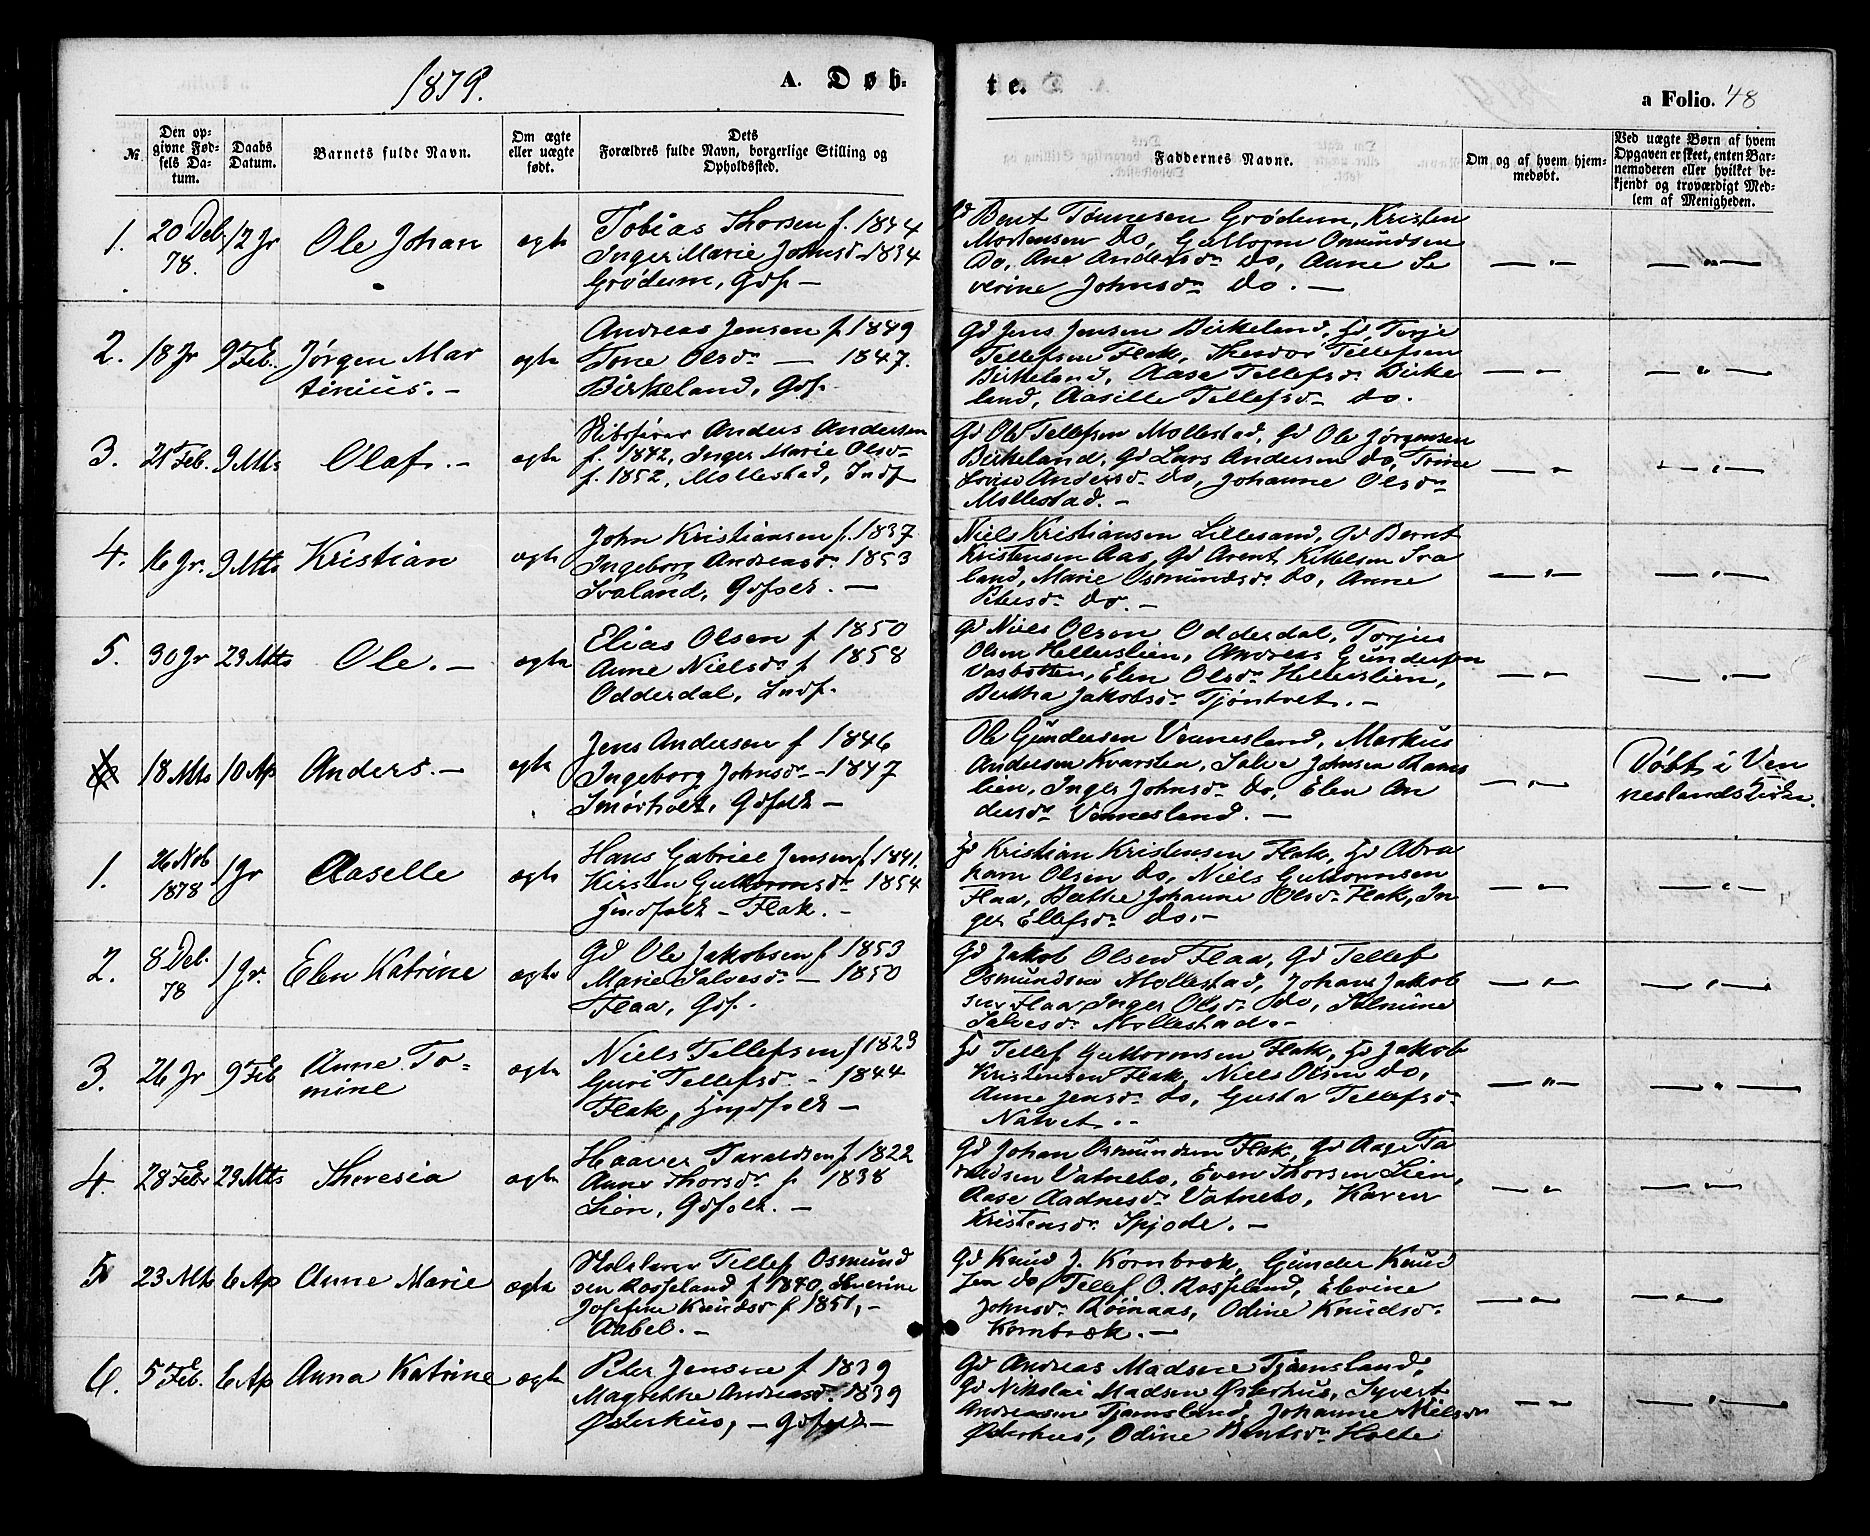 1879.
A. Døb-
te.
a Folio. 48
№.
Den op-
givne Fød-
sels Da-
tum.
Daabs
Datum.
Barnets fulde Navn.
Om ægte
eller uægte
født.
Dets
Forældres fulde Navn, borgerlige Stilling og
Opholdssted.
Faddernes Navne.
Om og af hvem hjem-
medøbt.
Ved uægte Børn af hvem
Opgaven er skeet, enten Bar-
nemoderen eller hvilket be-
kjendt og troværdigt Med-
lem af Menigheden.
1.
20 Deb
78.
12 Jr
Ole Johan
ægte
Tobias Thorsen f. 1844
Inger Marie Johnsd - 1834
Grødum, Gdf. —
Bent Tønnesen Grødum, Kristen
Mortensen Do, Guttorm Osmundsen
Do, Ane Andersdr Do, Anne Se
verine Johnsdr Do. —
— " —
— " —
2.
18 Jr
9 Feb.
Jørgen Mar
tinius. —
ægte
Andreas Jensen f. 1849
Tone Olsdr — 1847.
Birkeland, Gdf.
Gd Jens Jensen Birkeland, Gd Torje
Tellefsen Flak, Theodor Tellefsen
Birkeland, Aase Tellefsdr Birke
land, Aasille Tellefsdr Do.
— " —
— " —
3.
21 Feb.
9 Mts
Olaf. —
ægte
Skibsfører Anders Andersen
f. 1842, Inger Marie Olsdr
f. 1852, Mollestad, Indf
Gd Ole Tellefsen Mollestad, Gd Ole Jørgensen
Birkeland, Gd Lars Andersen Do, Trine
Lovise Andersdr Do, Johanne Olsdr
Mollestad. —
— " —
— " —
4.
16 Jr.
9 Mts
Kristian
ægte
John Kristiansen f. 1837
Ingeborg Andreasdr 1853
Svaland, Gdfolk. —
Niels Kristiansen Lillesand, Gd Bernt
Kristensen Aas, Gd Arent Kittelsen Sva
land, Marie Osmundsdr Do, Anne
Petersdr Do. —
— " —
— " —
5.
30 Jr
23 Mts
Ole. —
ægte
Elias Olsen f 1850
Anne Nielsdr f 1858
Odderdal, Indf.
Gd Niels Olsen Odderdal, Torjus
Olsen Hellerslien, Andreas Gundersen
Vasbotten, Elen Olsdr Hellerslien,
Bertha Jakobsdr Tjøntvet. —
— " —
— " —
6
18 Mts
10 Ap
Anders. —
ægte
Jens Andersen f 1846
Ingeborg Johnsdr - 1847
Smørholt, Gdfolk —
Ole Gundersen Vennesland, Markus
Andersen Kvarsten, Salve Johnsen Rams
lien, Inger Johnsdr Do, Elen An
dersdr Vennesland. —
— " —
Døbt i Ven
neslands Kirke.
1.
26 Nob
1878
1 Jr
Aaselle
ægte
Hans Gabriel Jensen f 1841.
Kirsten Guttormsdr 1854
Indfolk - Flak. -
Gd Kristian Kristensen Flak, Gd Abra
ham Olsen Do, Niels Guttormsen
Flaa, Berthe Johanne Olsdr Flak, In
ger Ellefsdr Do. -
— " —
— " —
2.
8 Deb.
78
1 Jr.
Elen Katrine
ægte
Gd Ole Jakobsen f 1853
Marie Salvesdr — 1850
Flaa, Gdf.
Gd Jakob Olsen Flaa, Gd Tellef
Osmundsen Mollestad, Johan Jakob
sen Flaa, Inger Olsdr Do, Salmine
Salvesdr Mollestad. -
— " —
— " —
3.
26 Jr
9 Feb
Anne To-
mine
ægte
Niels Tellefsen f 1823
Guri Tellefsdr - 1844
Flak, Indfolk —
Gd Tellef Guttormsen Flak, Gd Jakob
Kristensen Flak, Niels Olsen Do,
Anne Jensdr Do, Gusta Tellefsdr
Natvet. -
— " —
— " —
4.
28 Febr
23 Mts
Theresia
ægte
Haaver Taraldsen f 1822
Anne Thorsdr f. 1838
Lien, Gdfolk. —
Gd Johan Osmundsen Flak, Gd Aage Ta
raldsen Vatnebo, Even Thorsen Lien,
Aase Aadnesdr Vatnebo, Karen
Kristensdr Spjode. —
— " —
— " —
5
23 Mts
6 Ap
Anne Marie
ægte
Skolelærer Tellef Osmund
sen Rosseland f 1840, Severine
Josefine Knudsdr f 1851, —
Aabel. —
Gd Knud J. Kornbrek, Gunder Knud
sen Do, Tellef O. Rosseland, Elevine
Johnsdr Røinaas, Odine Knudsdr
Kornbræk. —
— " —
— " —
6.
5 Feb.
6 Ap
Anna Katrine
ægte
Peter Jensen f 1839
Magrethe Andreasd. 1839
Østerhus, — Gdfolk —
Gd Andreas Madsen Tjamsland,
Gd Nikolai Madsen Østerhus, Syvert
Andreasen Tjamsland, Johanne Nielsdr
Østerhus, Odine Berntsdr Holte
— " —
— " —